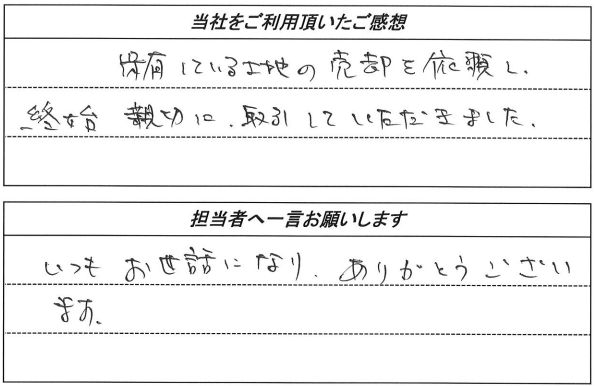 当社をご利用頂いたご感想
保有している土地の売却を依頼し、
終始 親切に、取引していただきました。
担当者へ一言お願いします
いつも お世話になり、ありがとうござい
ます。